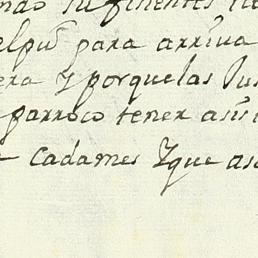 suficientes
para arriva
era y porque las Jus
parroco tener assi
cada mes y que as